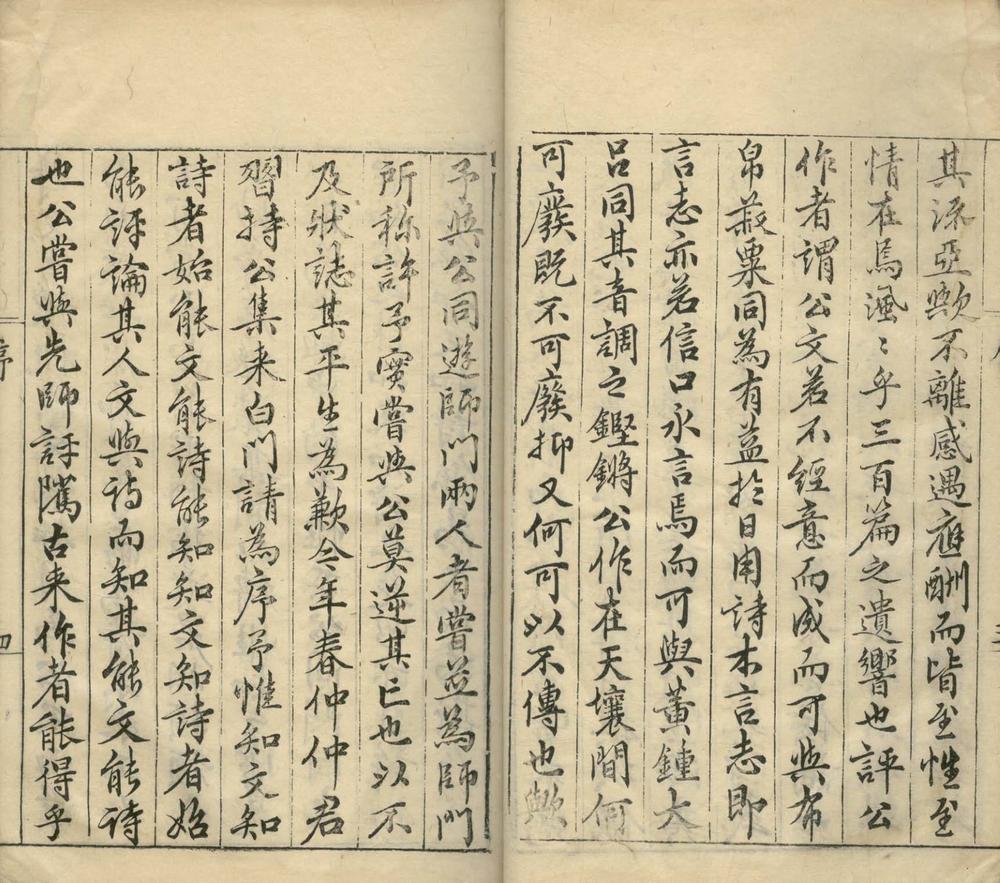 其流亞歟不離感遇應酬而皆至性至
情在焉渢〻乎三百篇之遺響也評公
作者謂公文若不經意而成而可與布
帛菽粟同為有益於日用詩本言志即
言志亦若信口永言焉而可與黃鍾大
呂同其音調之鏗鏘公作在天壤間何
可廢既不可廢抑又何可以不傳也歟
予與公同遊師門兩人者嘗並為師門
所稱許予實嘗與公莫逆其亡也以不
及狀誌其平生為歉今年春仲仲君
習持公集来白門請為序予惟知文知
詩者始能文能詩能知知文知詩者始
能評論其人文與詩而知其能文能詩
也公嘗與先師評騭古来作者能得乎
序
四